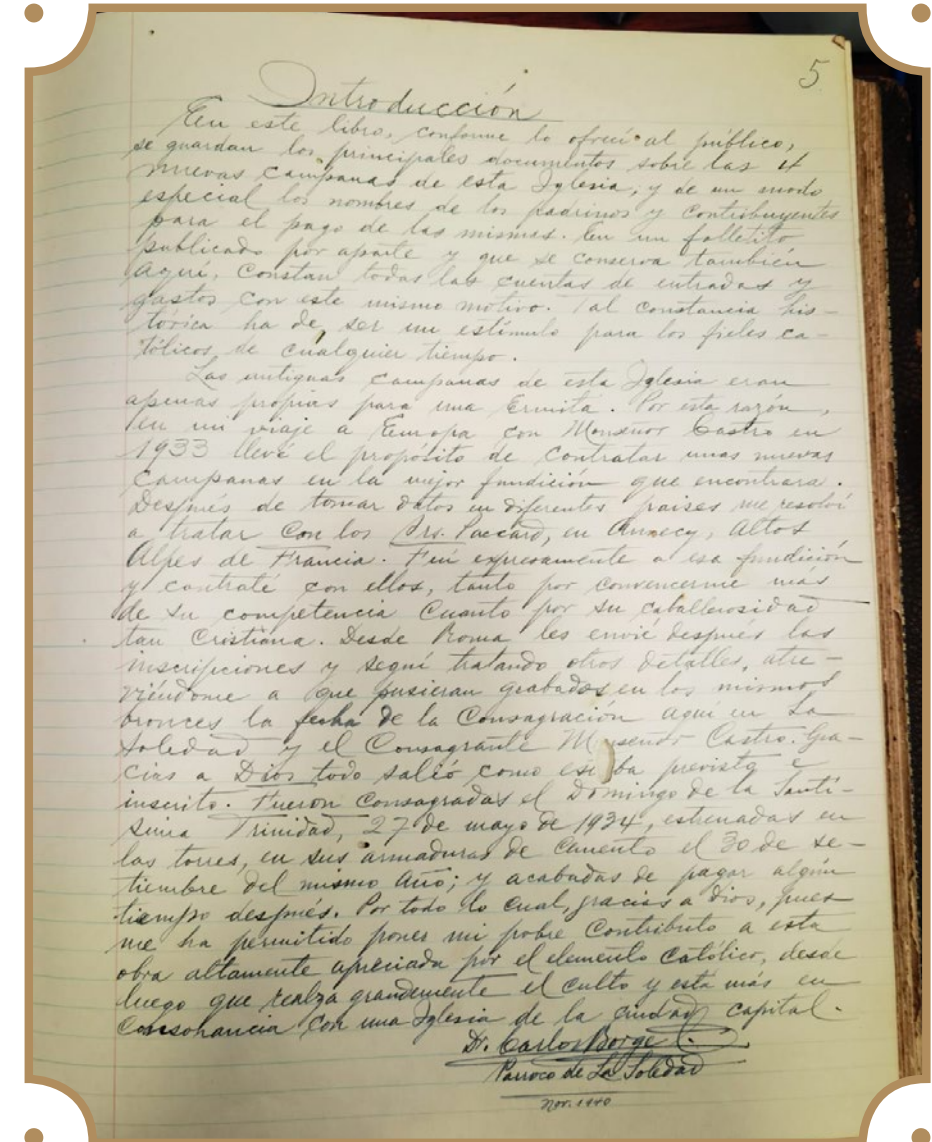 5
Introducción
En este libro, conforme lo ofrecí al público,
se guardan los principales documentos sobre las 4
nuevas campanas de esta Iglesia; y de un modo
especial los nombres de los padrinos y contribuyentes
para el pago de las mismas. En un folletito
publicado por aparte y que se conserva también
aquí, constan todas las cuentas de entradas y
gastos con este mismo motivo. Tal constancia his-
tórica ha de ser un estímulo para los fieles ca-
tólicos de cualquier tiempo.
Las antiguas campanas de esta Iglesia eran
apenas propias para una Ermita. Por esta razón,
en un viaje a Europa con Monseñor Castro en
1933 llevé el propósito de contratar unas nuevas
campanas en la mejor fundición que encontrara.
Después de tomar datos en diferentes paises me resolví
a tratar con los Srs. Paccard, en Annecy, Altos
Alpes de Francia. Fuí expresamente a esa fundición
y contraté con ellos, tanto por convencerme más
de su competencia cuanto por su caballerosidad
tan cristiana. Desde Roma les envié después las
inscripciones y seguí tratando otros detalles, atre-
viéndome a que pusieran grabados en los mismos
bronces la fecha de la Consagración aquí en La
Soledad y el Consagrante Monseñor Castro. Gra-
cias a Dios todo salió como estaba previsto e
inscrito. Fueron consagradas el Domingo de la Santí-
sima Trinidad, 27 de mayo de 1934, estrenadas en
las torres, en sus armaduras de cemento el 30 de se-
tiembre del mismo año; y acabadas de pagar algún
tiempo después. Por todo lo cual, gracias a Dios, pues
me ha permitido poner mi pobre contributo a esta
obra altamente apreciada por el elemento católico, desde
luego que realza grandemente el culto y está más en
consonancia con una Iglesia de la ciudad capital.
Dr. Carlos Borge C.
Párroco de La Soledad
Nov. 1940